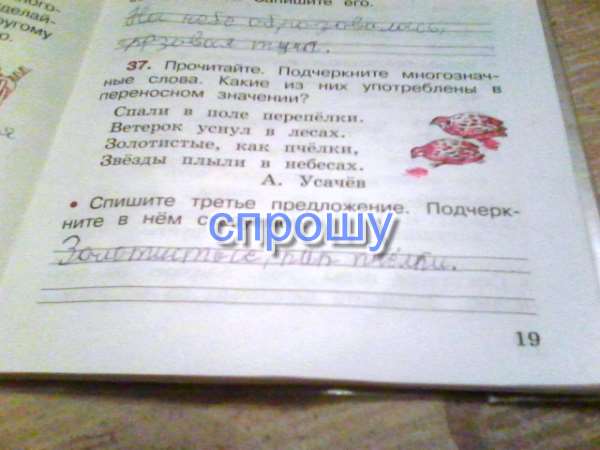 ного-
делай-
ругому
о.
Запишите его.
На небе образовалась
грозовая туча.
37. Прочитайте. Подчеркните многознач-
ные слова. Какие из них употреблены в
переносном значении?
Спали в поле перепёлки.
Ветерок уснул в лесах.
Золотистые, как пчёлки,
Звёзды плыли в небесах.
А. Усачёв
я
• Спишите третье предложение. Подчерк-
ните в нём
спрошу
Золотистые, как пчёлки.
19